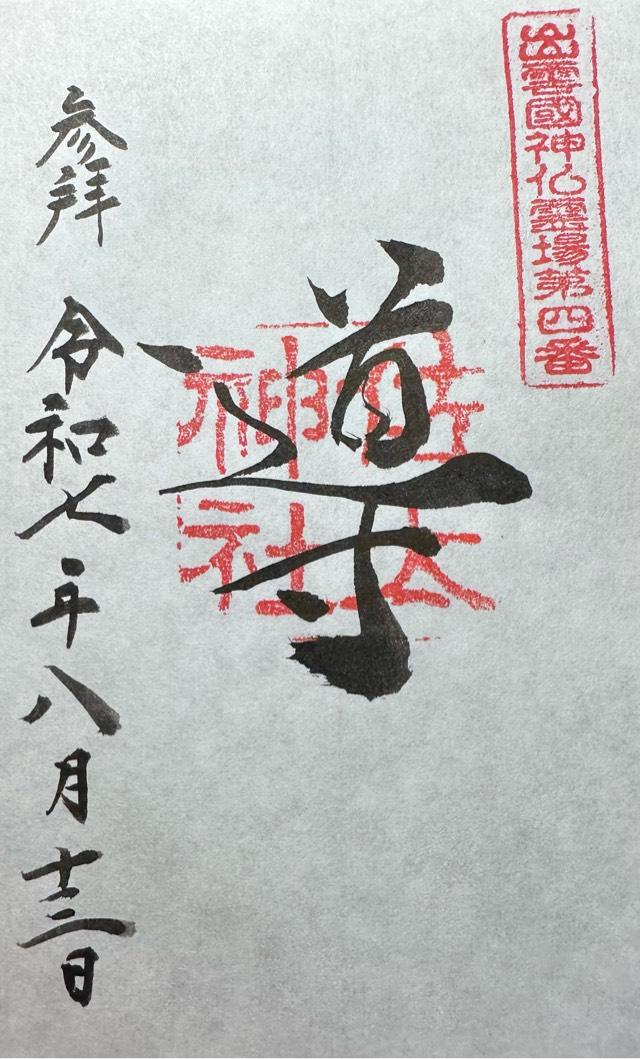 出雲國神仏霊場第四番
導
佐太
神社
参拝 令和七年八月十三日